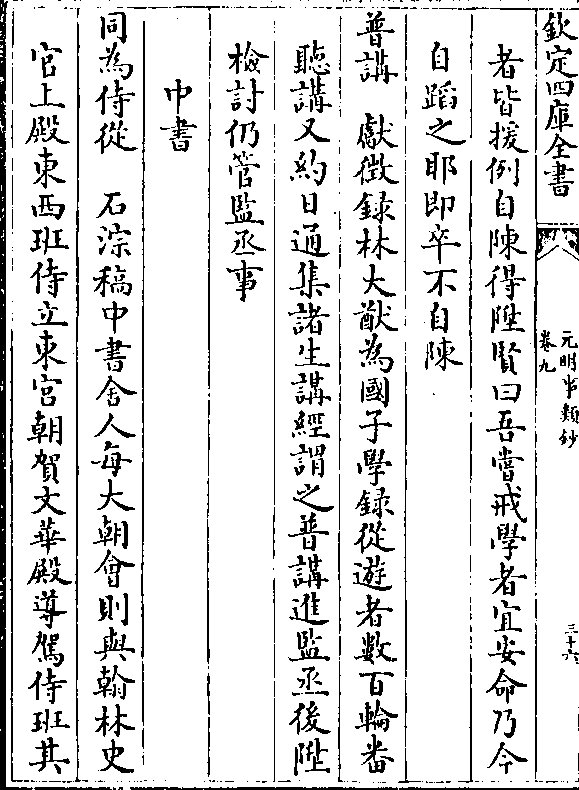 欽定四庫全書
元明事類鈔
卷九
三十六
者皆援例自陳得陞賢曰吾嘗戒學者宜安命乃今
自蹈之耶即卒不自陳
普講　獻徵錄林大猷為國子學録從遊者數百輪番
聽講又約日通集諸生講經謂之普講進監丞後陞
檢討仍管監丞事
中書
同為侍從　石淙稿中書舍人每大朝會則與翰林史
官上殿東西班侍立東宮朝賀文華殿導駕侍班其